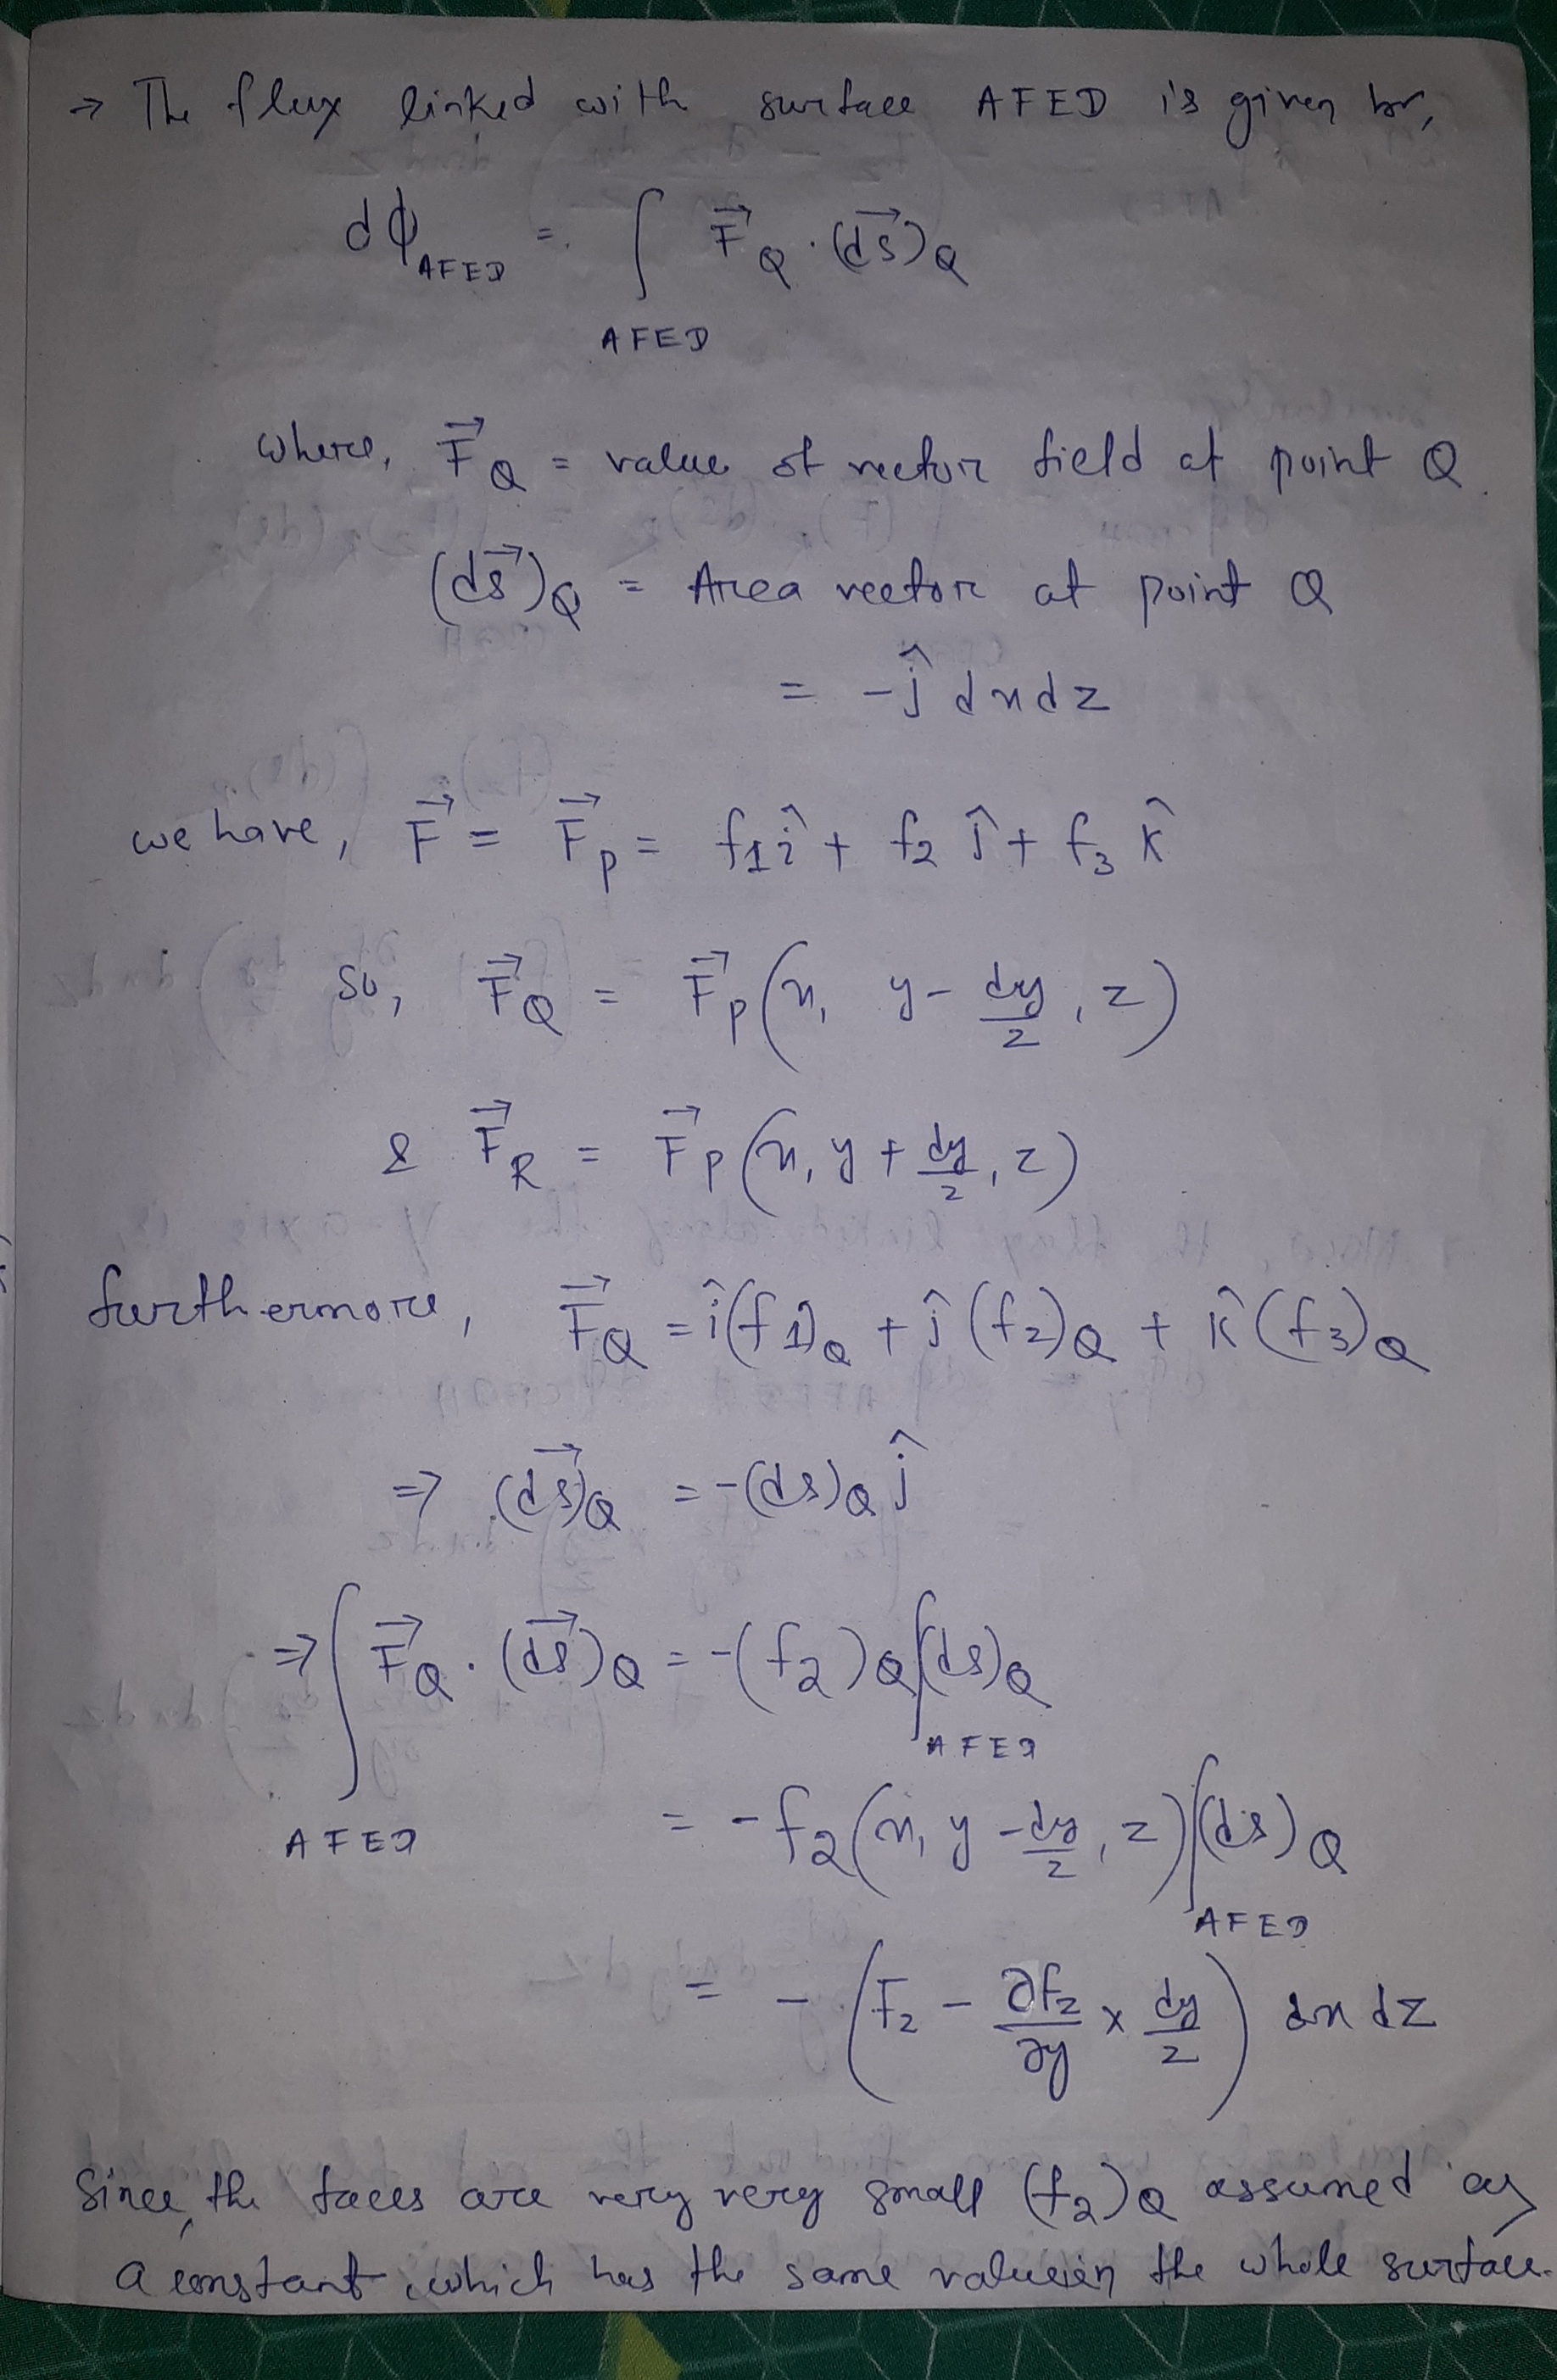 → The flux linked with surface AFED is given by,
dϕ_AFED = ∫_AFED F⃗_Q · (ds⃗)_Q
where, F⃗_Q = value of vector field at point Q.
(ds⃗)_Q = Area vector at point Q
= -ĵ dxdz
we have, F⃗ = F⃗_p = f₁î + f₂ ĵ + f₃ k̂
so, F⃗_Q = F⃗_p (x, y - dy/2, z)
& F⃗_R = F⃗_p (x, y + dy/2, z)
furthermore, F⃗_Q = î(f₁)_Q + ĵ(f₂)_Q + k̂(f₃)_Q
⇒ (ds⃗)_Q = -(ds)_Q ĵ
⇒ ∫_AFED F⃗_Q · (ds⃗)_Q = -(f₂)_Q ∫_AFED (ds)_Q
= -f₂(x, y - dy/2, z) ∫_AFED (ds)_Q
= - (F₂ - ∂f₂/∂y × dy/2) dx dz
Since, the faces are very very small (f₂)_Q assumed as
a constant, which has the same value in the whole surface.